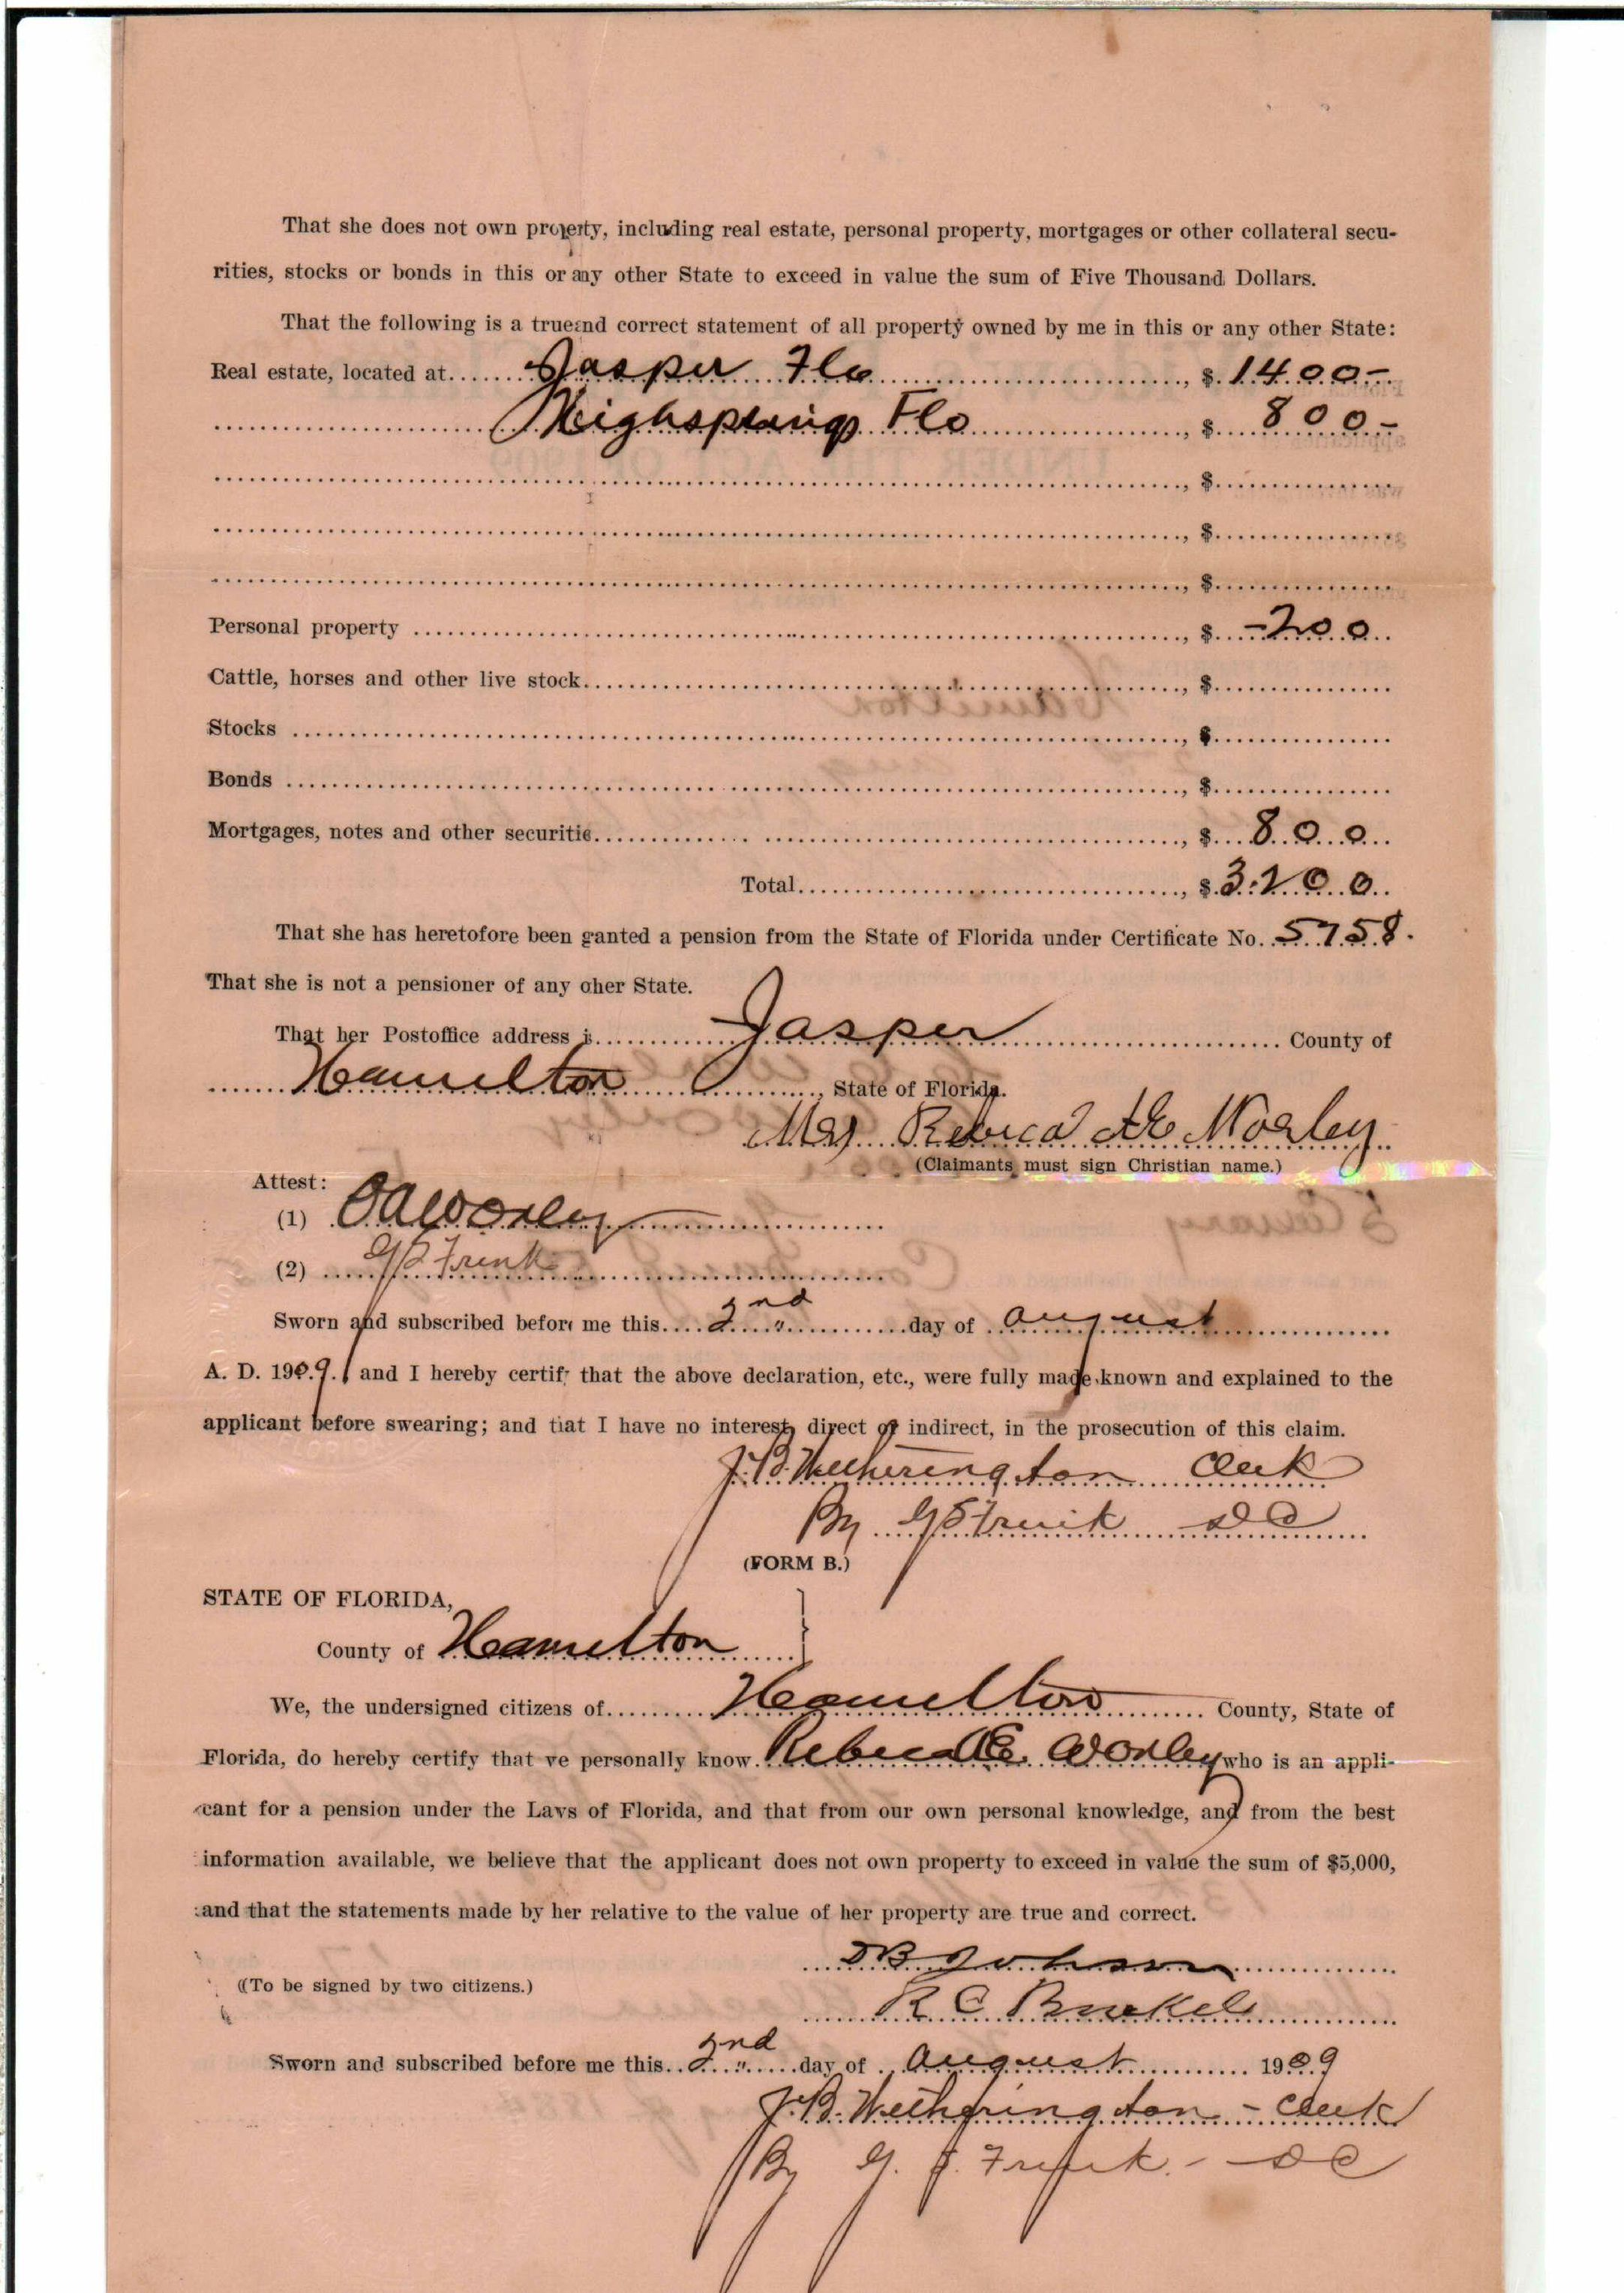 That she does not own property, including real estate, personal property, mortgages or other collateral secu-
rities, stocks or bonds in this or any other State to exceed in value the sum of Five Thousand Dollars.
That the following is a true and correct statement of all property owned by me in this or any other State:
Real estate, located at Jasper Fla, $ 1400-
Highsprings Fla, $ 800-
, $
, $
, $
Personal property, $ -200
Cattle, horses and other live stock, $
Stocks, $
Bonds, $
Mortgages, notes and other securitie, $ 800
Total, $ 3200
That she has heretofore been granted a pension from the State of Florida under Certificate No. 5758.
That she is not a pensioner of any oher State.
That her Postoffice address is Jasper County of
Hamilton, State of Florida.
Mrs Rebeca E Worley
(Claimants must sign Christian name.)
Attest:
(1) O A Worley
(2) Frink
Sworn and subscribed before me this 2nd day of August
A. D. 1909, and I hereby certify that the above declaration, etc., were fully made known and explained to the
applicant before swearing; and that I have no interest, direct or indirect, in the prosecution of this claim.
J. B. Wetherington Clerk
By Frink DC
(FORM B.)
STATE OF FLORIDA,
County of Hamilton
We, the undersigned citizens of Hamilton County, State of
Florida, do hereby certify that we personally know Rebecca E. Worley who is an appli-
cant for a pension under the Laws of Florida, and that from our own personal knowledge, and from the best
information available, we believe that the applicant does not own property to exceed in value the sum of $5,000,
and that the statements made by her relative to the value of her property are true and correct.
D B Johnson
((To be signed by two citizens.)
R C
Sworn and subscribed before me this 2nd day of August 1909
J. B. Wetherington - Clerk
By Frink. - DC